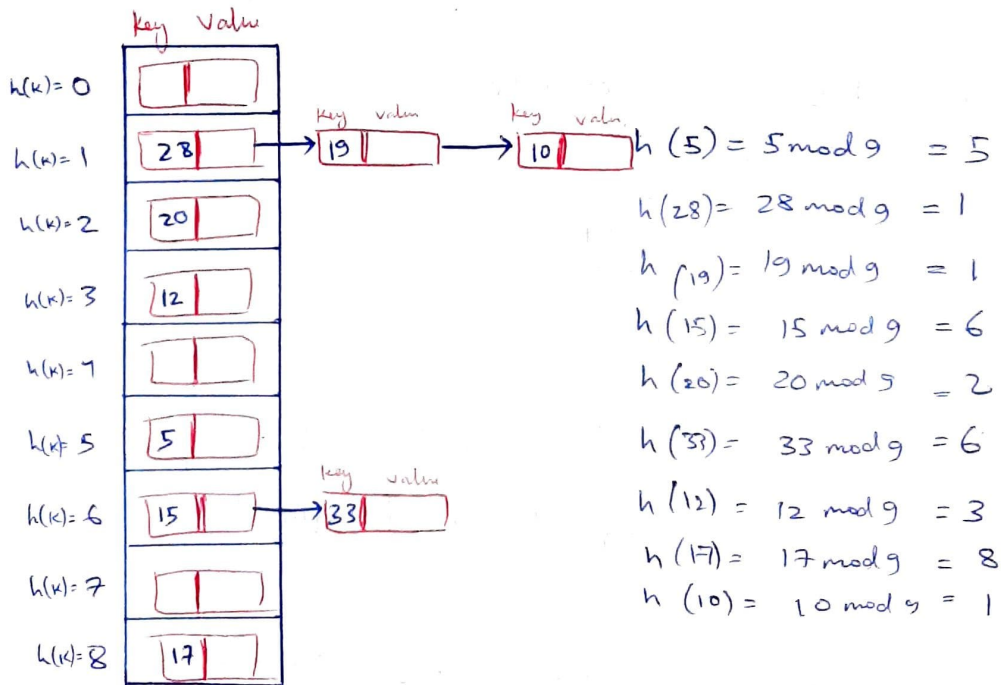 key value
h(k)= 0
h(k)= 1 28
key value
19
key valu
10
h(k)= 2 20
h(k)= 3 12
h(k)= 4
h(k)= 5 5
h(k)= 6 15
key value
33
h(k)= 7
h(k)= 8 17
h (5) = 5 mod 9 = 5
h (28) = 28 mod 9 = 1
h (19) = 19 mod 9 = 1
h (15) = 15 mod 9 = 6
h (20) = 20 mod 9 = 2
h (33) = 33 mod 9 = 6
h (12) = 12 mod 9 = 3
h (17) = 17 mod 9 = 8
h (10) = 10 mod 9 = 1